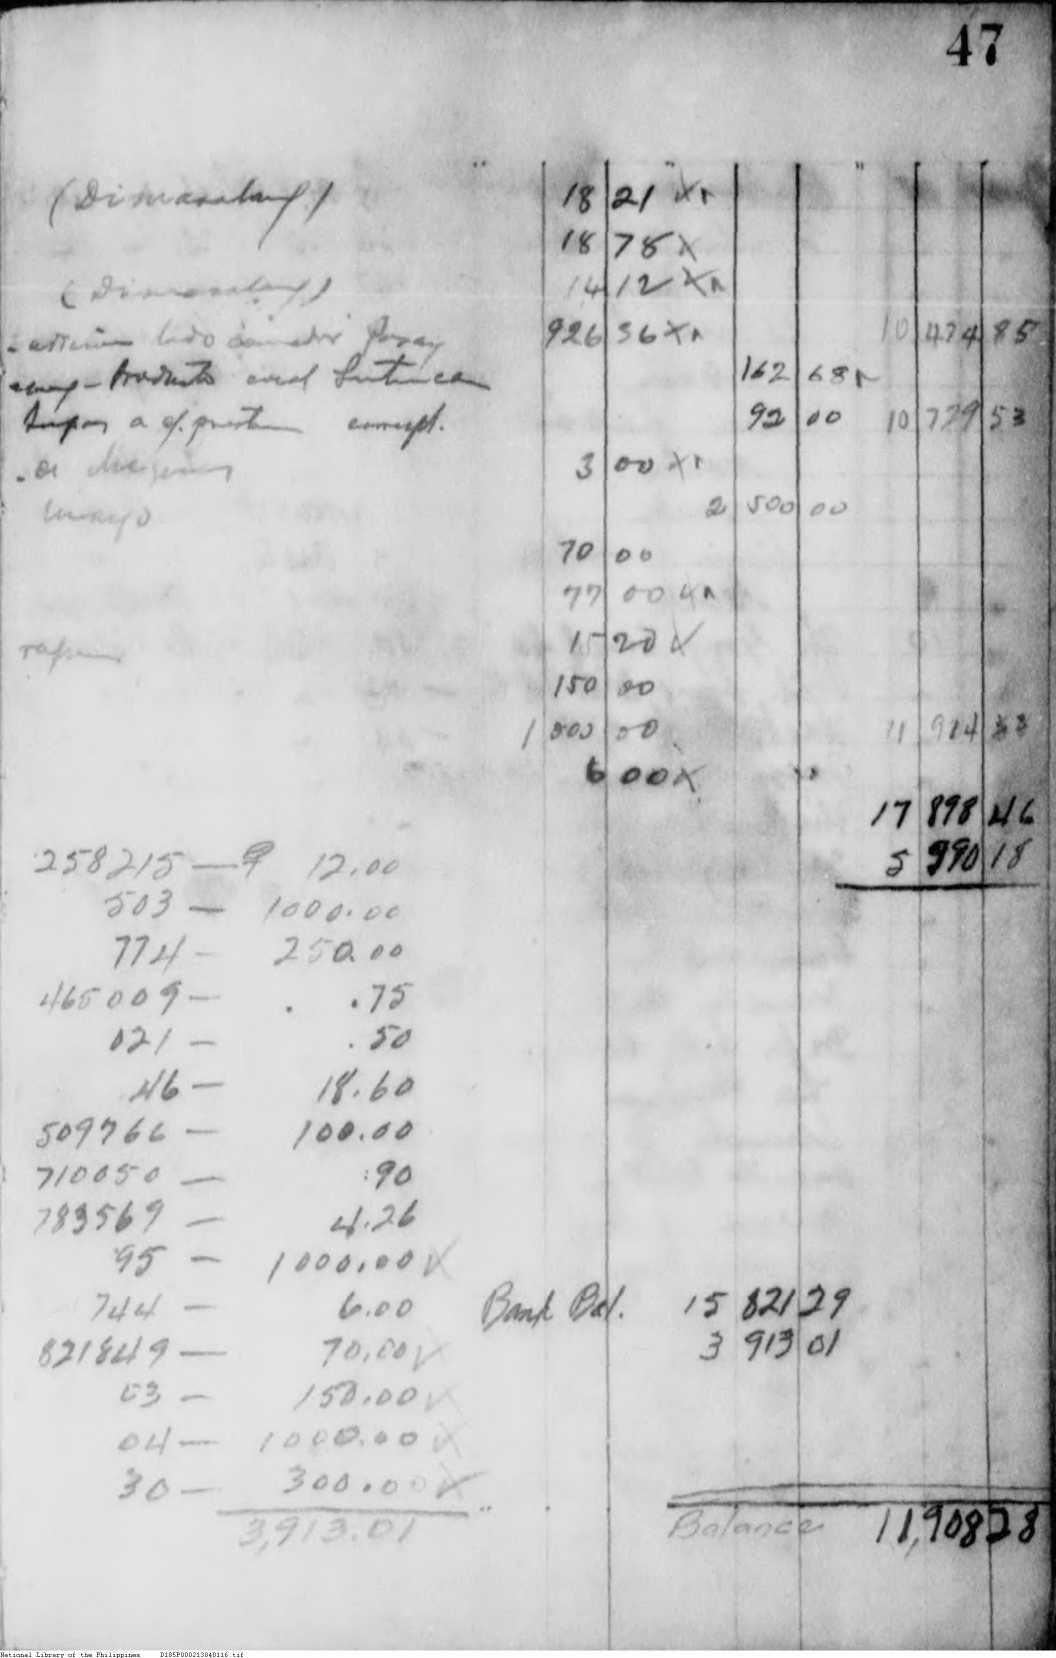 47
(Dimasalang) 18 21
18 78
(Dimasalang) 14 12
926 36 10 474 85
Products 162 68
a 92 00 10 729 53
3 00
2 500 00
70 00
77 00
15 20
150 00
1 000 00 11 914 33
6 00
17 898 46
258215 — ₱ 12.00 5 990 18
503 — 1000.00
774 — 250.00
465009 — .75
021 — .50
46 — 18.60
509766 — 100.00
710050 — .90
783569 — 4.26
95 — 1000.00
744 — 6.00 Bank Bal. 15 821 29
821849 — 70.00 3 913 01
03 — 150.00
04 — 1000.00
30 — 300.00
3,913.01 Balance 11,908 28
National Library of the Philippines D185P000213040116.tif